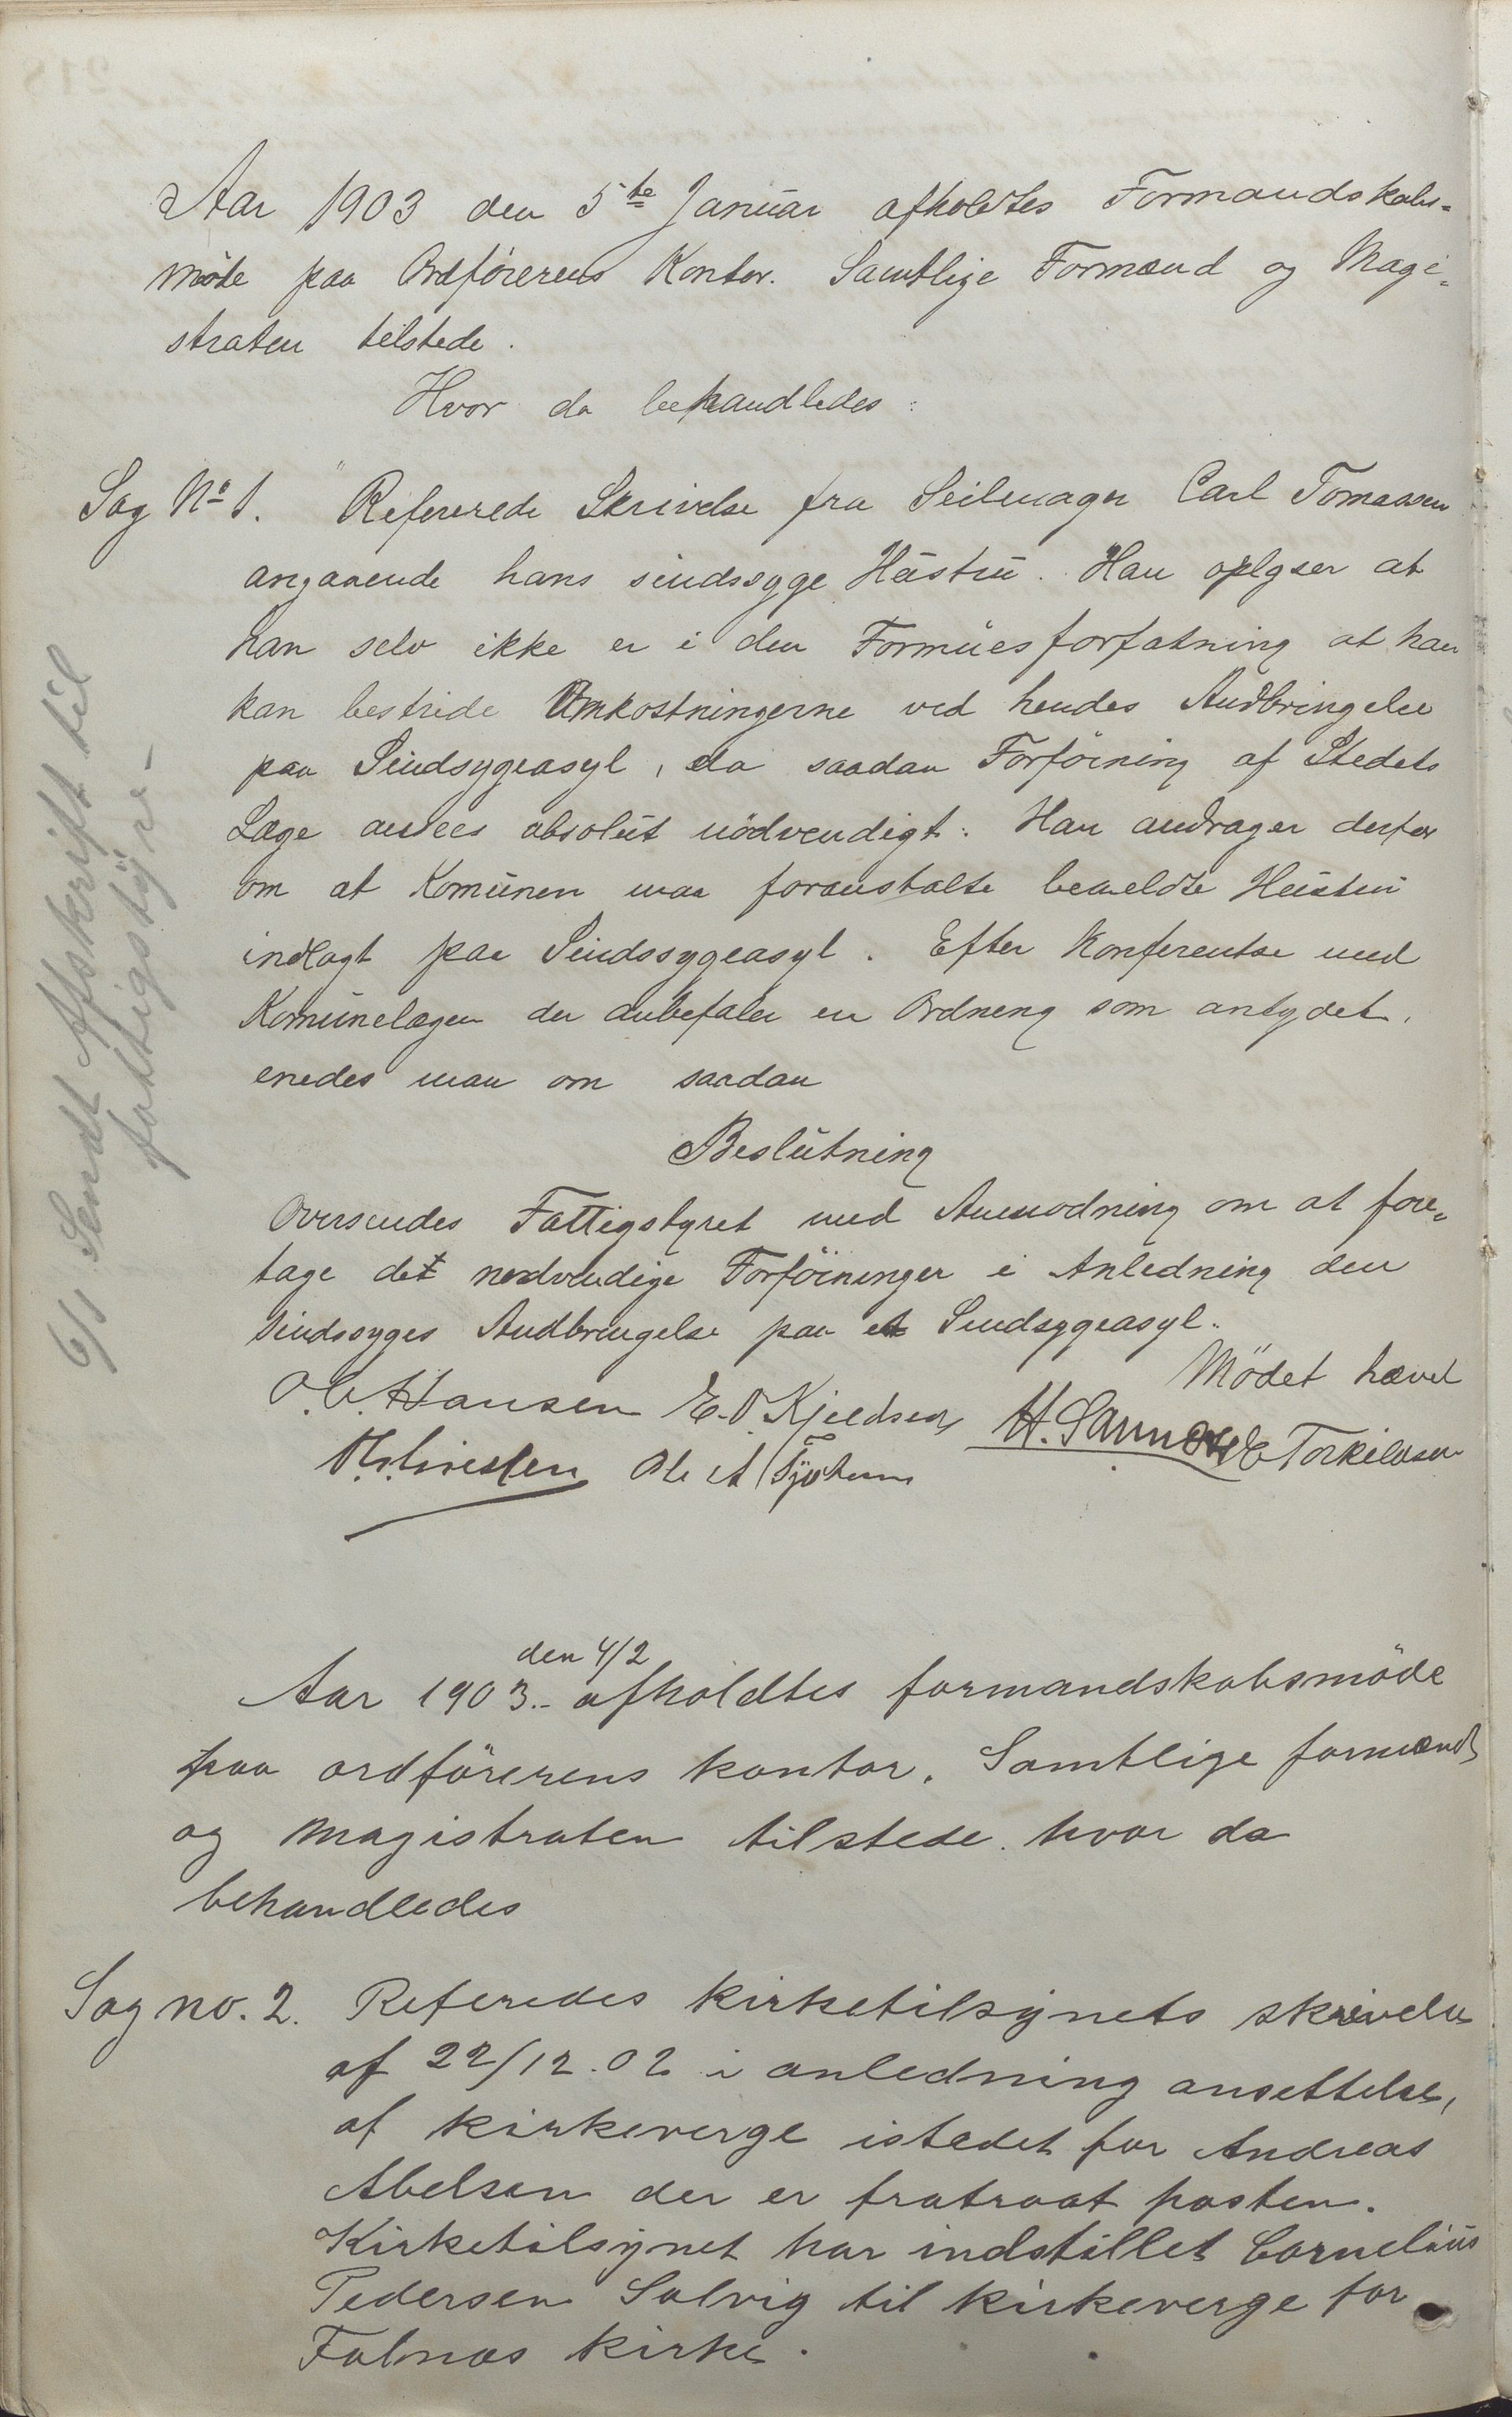 Aar 1903 den 5te Januar afholdtes Formandskabs-
møde paa Ordførerens Kontor. Samtlige Formænd og Magi-
straten tilstede.
Hvor da behandledes:
Sag No 1. Refererede Skrivelse fra Seilmager Carl Tomassen
angaaende hans sindssyge Hustru. Han oplyser at
han selv ikke er i den Formuesforfatning at han
kan bestride Omkostningerne ved hendes Andbringelse
paa Sindsygeasyl, da saadan Forføining af Stedets
Læge ansees absolut nødvendigt. Han andrager derfor
om at Komunen maa foranstalte bemeldte Hustru
indlagt paa Sindssygeasyl. Efter Konferentse med
Komunelægen der anbefaler en Ordning som antydet,
enedes man om saadan
Beslutning
Oversendes Fattigstyret med Anmodning om at fore-
tage det nødvendige Forføininger i Anledning den
sindssyges Andbringelse paa et Sindsygeasyl.
Mødet hævet
O. C. Hansen E. O. Kjeldsen H. Sannes E Torkildsen
Ole A
6/1 Sendt Afskrift til
fattigstyre-
den 4/2
Aar 1903.- afholdtes formandskabsmøde
paa ordførerens kontor. Samtlige formænd
og magistraten tilstede. hvor da
behandledes
Sag no. 2. Referedes kirketilsynets skrivelse
af 22/12.02 i anledning ansettelse,
af kirkeverge istedet for Andreas
Abelsen der er fratraat posten.
Kirketilsynet har indstillet Cornelius
Pedersen Salvig til kirkeverge for
Falnæs kirke.